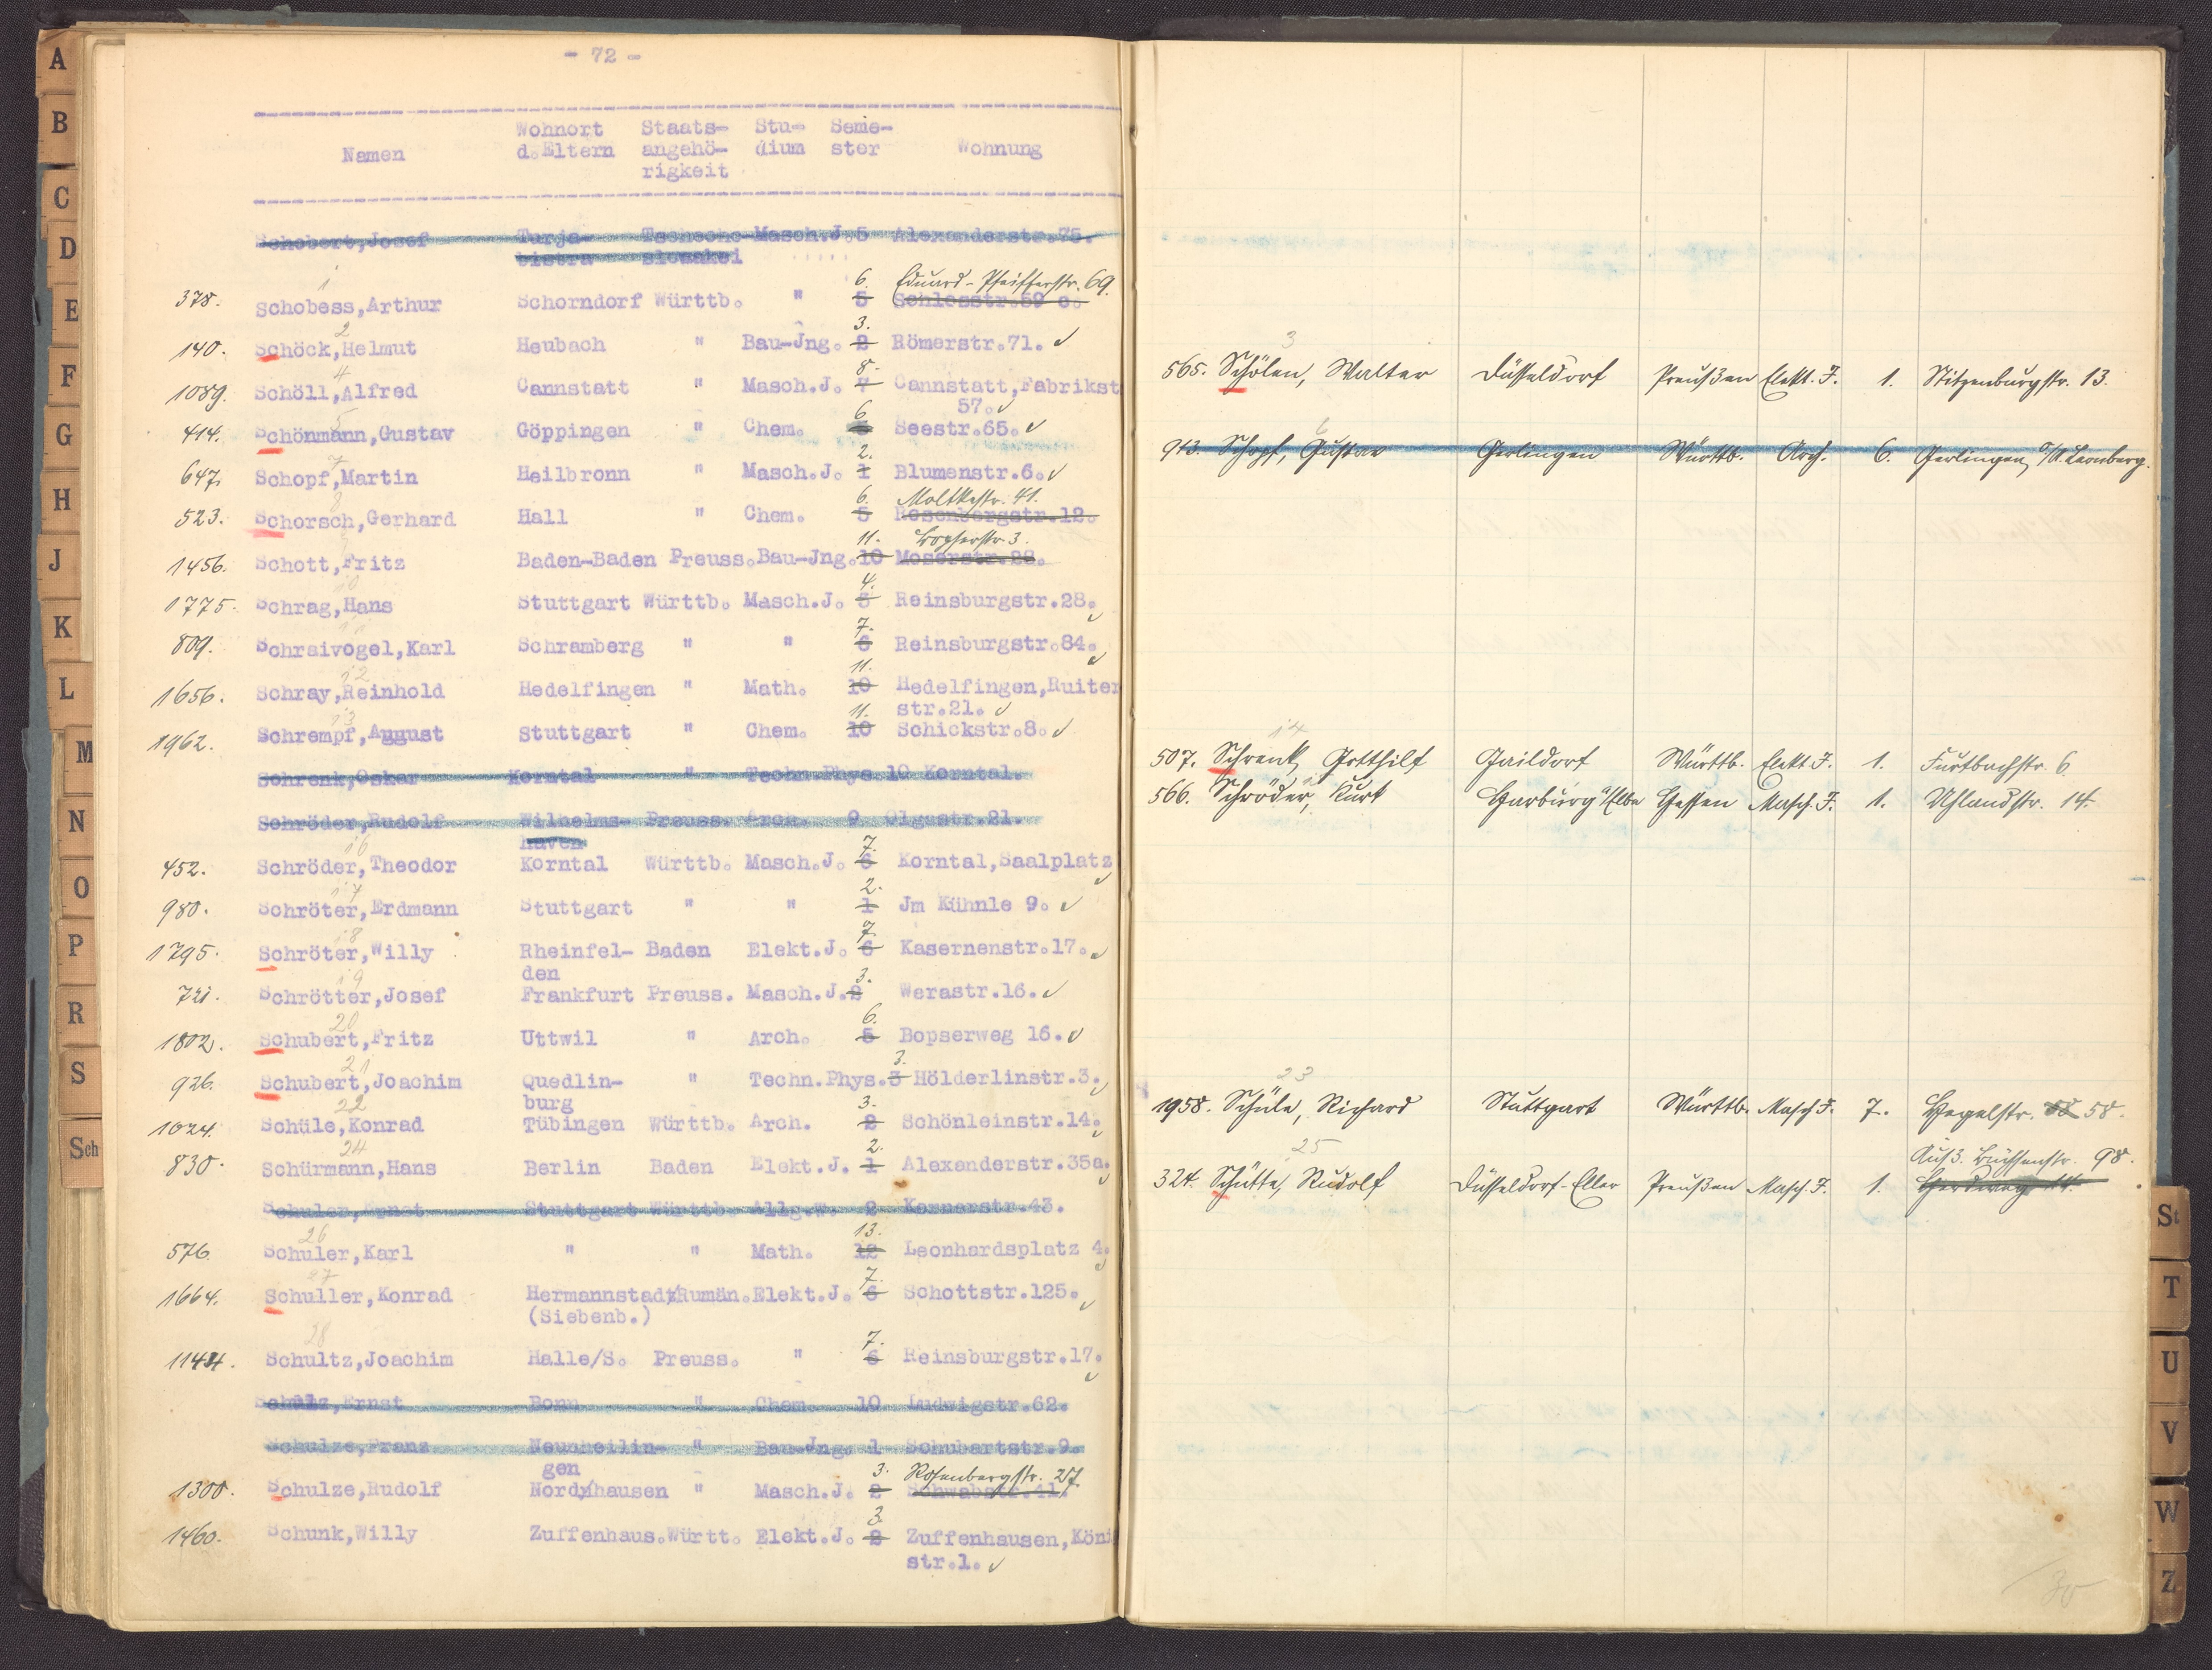 A
B
C
D
E
F
G
H
J
K
L
M
N
O
P
R
S
Sch
- 72 -
Namen Wohnort d.Eltern Staats-angehö-rigkeit Stu-dium Seme-ster Wohnung
Schobert,Josef Turja- Tschecho- Masch.J. 5 Alexanderstr.75.
bistra slowakei
1
6. Eduard-Pfeifferstr. 69.
378. Schobess,Arthur Schorndorf Württb. " 5 Schlosstr.59 c.
2 3.
140. Schöck,Helmut Heubach " Bau-Jng. 2 Römerstr.71.
4 8.
1089. Schöll,Alfred Cannstatt " Masch.J. 7 Cannstatt,Fabrikst
57.
5 6
414. Schönmann,Gustav Göppingen " Chem. Seestr.65.
7 2.
647. Schopf,Martin Heilbronn " Masch.J. 1 Blumenstr.6.
8 6. Moltkestr. 41.
523. Schorsch,Gerhard Hall " Chem. 5 Rosenbergstr.12.
9 11. Bopserstr. 3.
1456. Schott,Fritz Baden-Baden Preuss. Bau-Jng. 10 Moserstr.28.
10 4.
1775. Schrag,Hans Stuttgart Württb. Masch.J. 3 Reinsburgstr.28.
7.
809. Schraivogel,Karl Schramberg " " 6 Reinsburgstr.84.
12 11.
1656. Schray,Reinhold Hedelfingen " Math. 10 Hedelfingen,Ruiter
str.21.
13 11.
1962. Schrempf,August Stuttgart " Chem. 10 Schickstr.8.
Schrenk,Oskar Korntal " Techn.Phys. 10 Korntal.
Schröder,Rudolf Wilhelms- Preuss. Arch. 9 Olgastr.21.
haven
16 7.
452. Schröder,Theodor Korntal Württb. Masch.J. 6 Korntal,Saalplatz
17 2.
980. Schröter,Erdmann Stuttgart " " 1 Jm Kühnle 9.
18 7.
1795. Schröter,Willy Rheinfel- Baden Elekt.J. 6 Kasernenstr.17.
den
19 3.
721. Schrötter,Josef Frankfurt Preuss. Masch.J. 2 Werastr.16.
20 6.
1802. Schubert,Fritz Uttwil " Arch. 5 Bopserweg 16.
21 3.
926. Schubert,Joachim Quedlin- " Techn.Phys. 3 Hölderlinstr.3.
burg
22 3.
1024. Schüle,Konrad Tübingen Württb. Arch. 2 Schönleinstr.14.
24 2.
830. Schürmann,Hans Berlin Baden Elekt.J. 1 Alexanderstr.35a.
Schuler,Ernst Stuttgart Württb. Allg.W. 2 Kernerstr.43.
26 13.
576 Schuler,Karl " " Math. 12 Leonhardsplatz 4.
27 7.
1664. Schuller,Konrad Hermannstadt/Rumän. Elekt.J. 6 Schottstr.125.
(Siebenb.)
28 7.
1144. Schultz,Joachim Halle/S. Preuss. " 6 Reinsburgstr.17.
Schulz,Ernst Bonn " Chem. 10 Ludwigstr.62.
Schulze,Franz Neunheilin- " Bau-Jng. 1 Schubartstr.9.
gen
3. Rosenbergstr. 27.
1300. Schulze,Rudolf Nordhausen " Masch.J. 2 Schwabstr.41.
3.
1460. Schunk,Willy Zuffenhaus. Württ. Elekt.J. 2 Zuffenhausen,Köni
str.1.
3
565. Schölen, Walter Düsseldorf Preußen Elekt. J. 1. Stitzenburgstr. 13.
6
913. Schopf, Gustav Gerlingen Württb. Arch. 6. Gerlingen, O/A. Leonberg.
14
507. Schrenk, Gotthilf Gaildorf Württb. Elekt. J. 1. Furtbachstr. 6
566. Schröder, Kurt Harburg a/Elbe Hessen Masch. J. 1. Uhlandstr. 14.
23
1958. Schüle, Richard Stuttgart Württb. Masch. J. 7. Hegelstr. 58.
25 Auß. Büchsenstr. 98.
324. Schütte, Rudolf Düsseldorf-Eller Preußen Masch. J. 1. Herdweg
30
St
T
U
V
W
Z